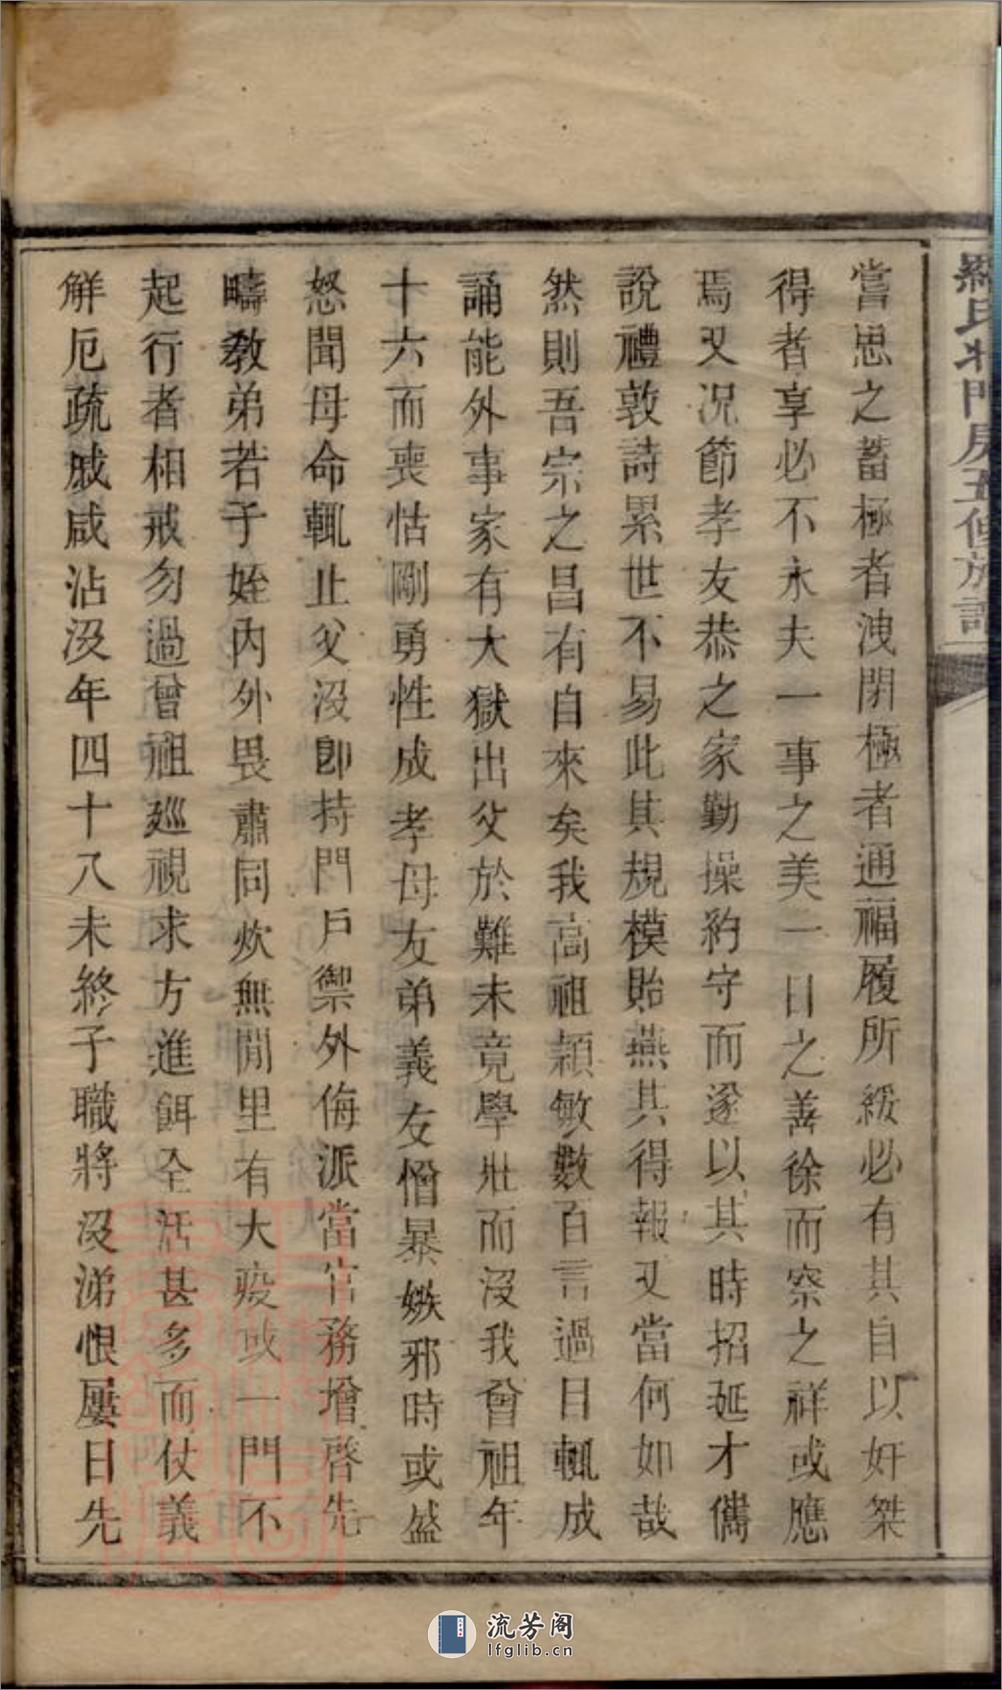 羅氏北門房五修族譜
嘗思之蓄極者洩閉極者通福履所綏必有其自以奸桀
得者享必不永夫一事之美一日之善徐而察之祥或應
焉又况節孝友恭之家勤操約守而遂以其時招延才儁
說禮敦詩累世不易此其規模貽燕其得報又當何如哉
然則吾宗之昌有自來矣我高祖穎敏數百言過目輒成
誦能外事家有大獄出父於難未竟學壯而沒我曾祖年
十六而喪怙剛勇性成孝母友弟義友憎暴嫉邪時或盛
怒聞母命輒止父沒卽持門戶禦外侮派當官務增啓先
疇教弟若子姪內外畏肅同炊無閒里有大疫或一門不
起行者相戒勿過曾祖廵視求方進餌全活甚多而仗義
解厄疏戚咸沾沒年四十八未終子職將沒涕恨屢曰先
流芳阁
lfglib.cn